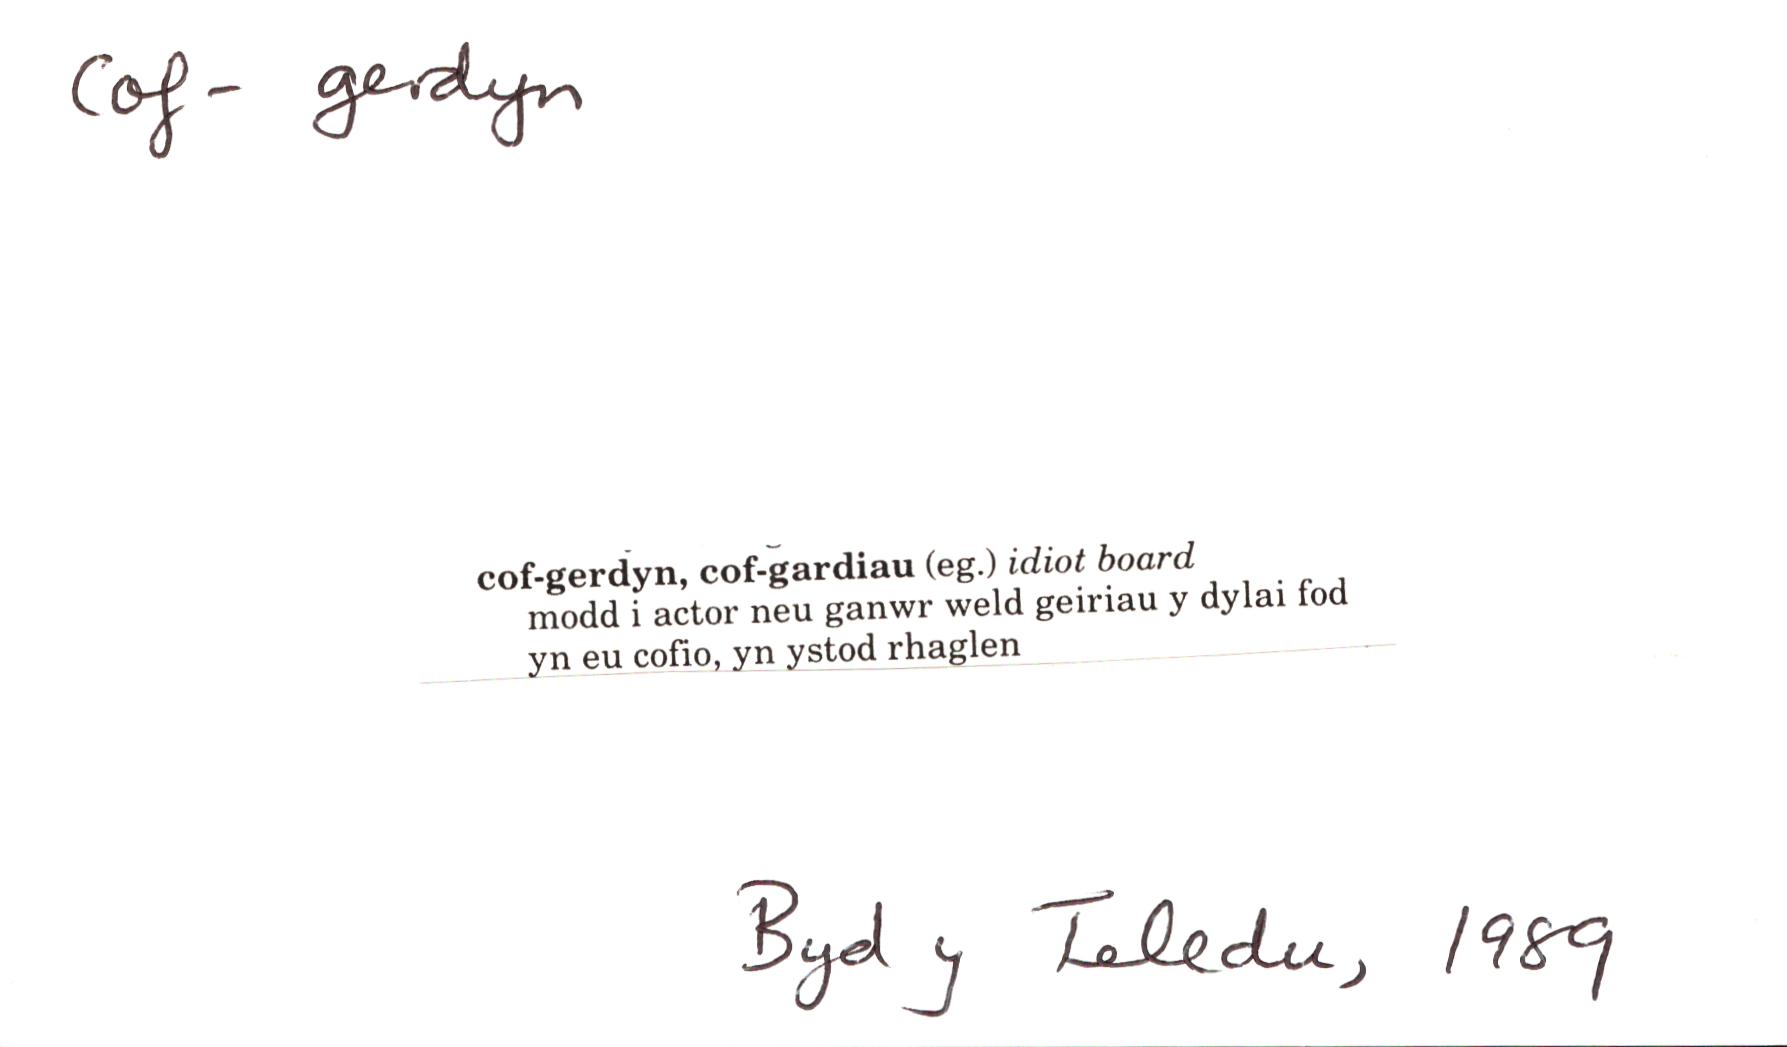 Cof- gerdyn
cof-gerdyn, cof-gardiau (eg.) idiot board
modd i actor neu ganwr weld geiriau y dylai fod
yn eu cofio, yn ystod rhaglen
Byd y Teledu, 1989